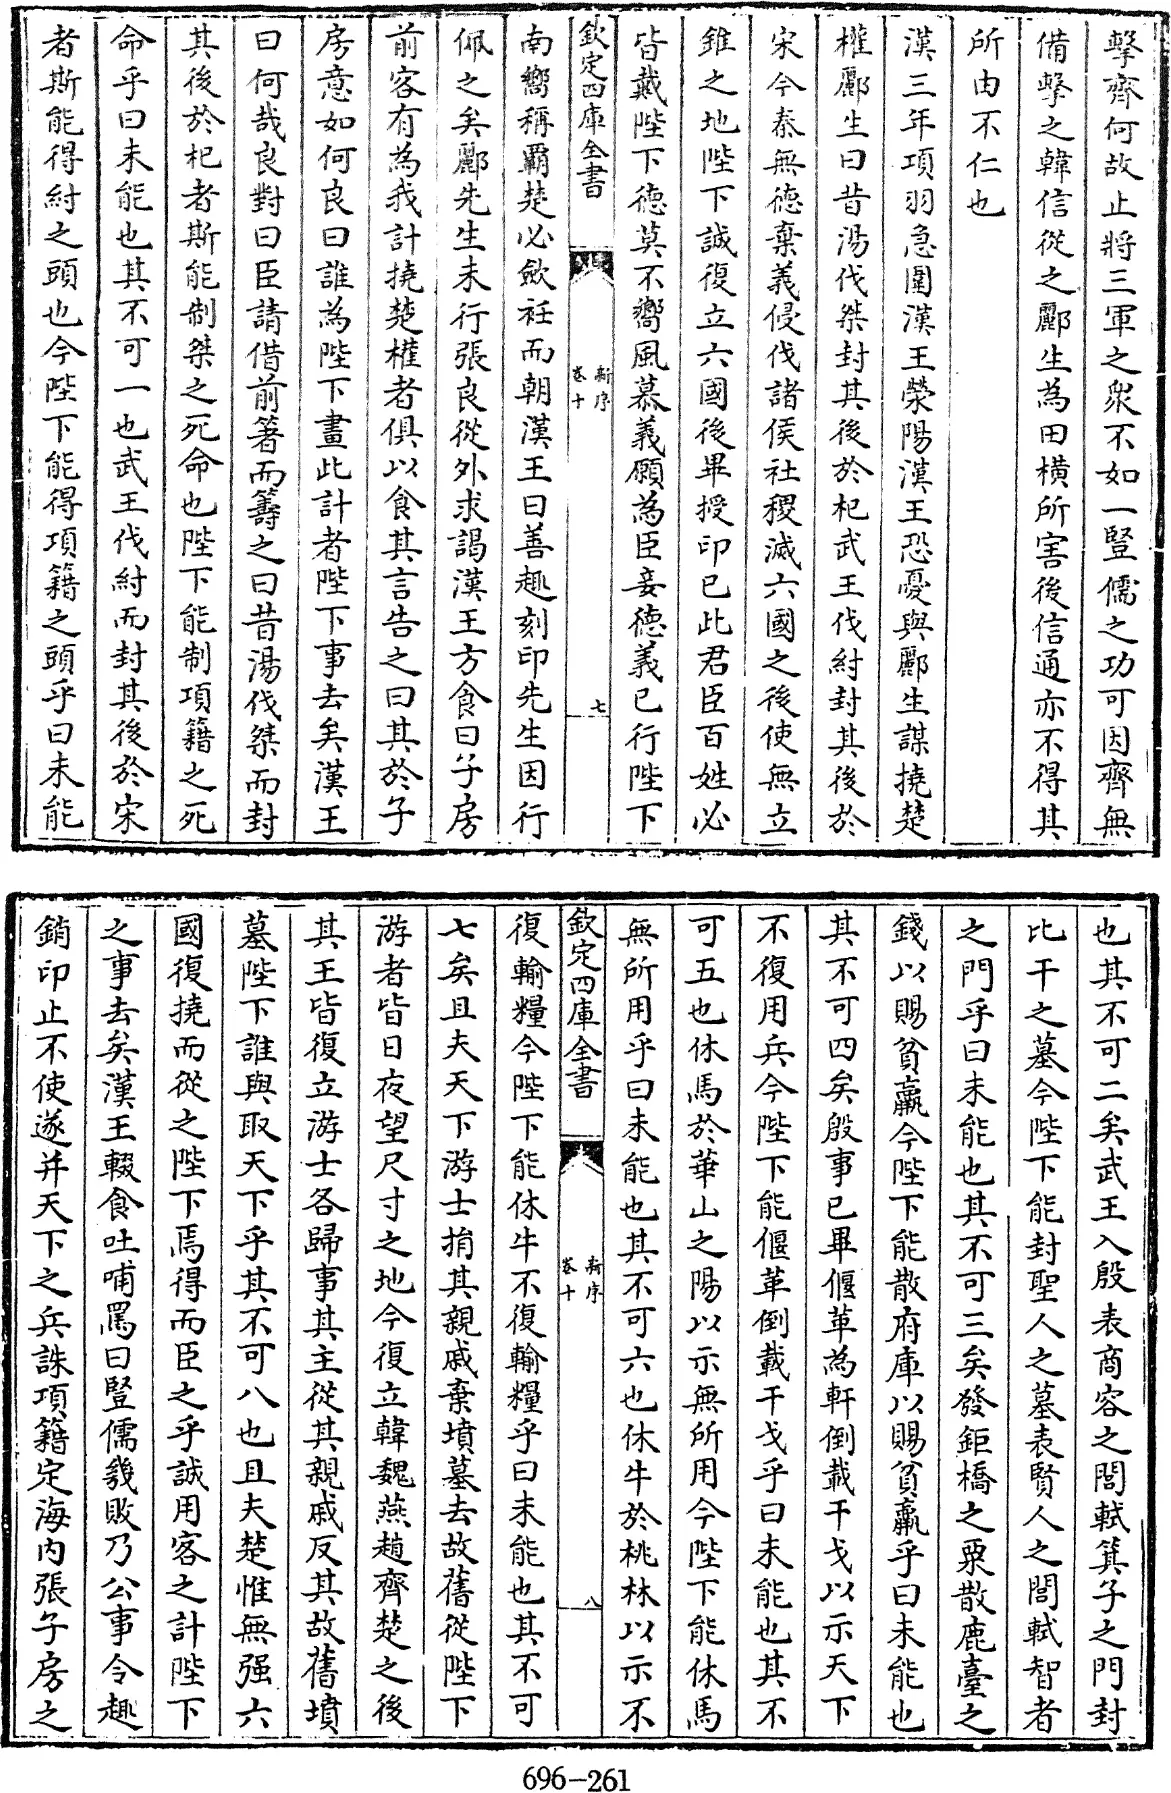 擊齊何故止將三軍之衆不如一豎儒之功可因齊無
備擊之韓信從之酈生為田橫所害後信通亦不得其
所由不仁也
漢三年項羽急圍漢王滎陽漢王恐憂與酈生謀撓楚
權酈生曰昔湯伐桀封其後於杞武王伐紂封其後於
宋今秦無德棄義侵伐諸侯社稷滅六國之後使無立
錐之地陛下誠復立六國後畢授印已此君臣百姓必
皆戴陛下德莫不嚮風慕義願為臣妾德義已行陛下
欽定四庫全書
新序
卷十
七
南嚮稱霸楚必斂衽而朝漢王曰善趣刻印先生因行
佩之矣酈先生未行張良從外求謁漢王方食曰子房
前客有為我計撓楚權者俱以食其言告之曰其於子
房意如何良曰誰為陛下畫此計者陛下事去矣漢王
曰何哉良對曰臣請借前箸而籌之曰昔湯伐桀而封
其後於杞者斯能制桀之死命也陛下能制項籍之死
命乎曰未能也其不可一也武王伐紂而封其後於宋
者斯能得紂之頭也今陛下能得項籍之頭乎曰未能
也其不可二矣武王入殷表商容之閭軾箕子之門封
比干之墓今陛下能封聖人之墓表賢人之閭軾智者
之門乎曰未能也其不可三矣發鉅橋之粟散鹿臺之
錢以賜貧羸今陛下能散府庫以賜貧羸乎曰未能也
其不可四矣殷事已畢偃革為軒倒載干戈以示天下
不復用兵今陛下能偃革倒載干戈乎曰未能也其不
可五也休馬於華山之陽以示無所用今陛下能休馬
無所用乎曰未能也其不可六也休牛於桃林以示不
欽定四庫全書
新序
卷十
八
復輸糧今陛下能休牛不復輸糧乎曰未能也其不可
七矣且夫天下游士捐其親戚棄墳墓去故舊從陛下
游者皆日夜望尺寸之地今復立韓魏燕趙齊楚之後
其王皆復立游士各歸事其主從其親戚反其故舊墳
墓陛下誰與取天下乎其不可八也且夫楚惟無强六
國復撓而從之陛下焉得而臣之乎誠用客之計陛下
之事去矣漢王輟食吐哺罵曰豎儒幾敗乃公事令趣
銷印止不使遂并天下之兵誅項籍定海内張子房之
696-261